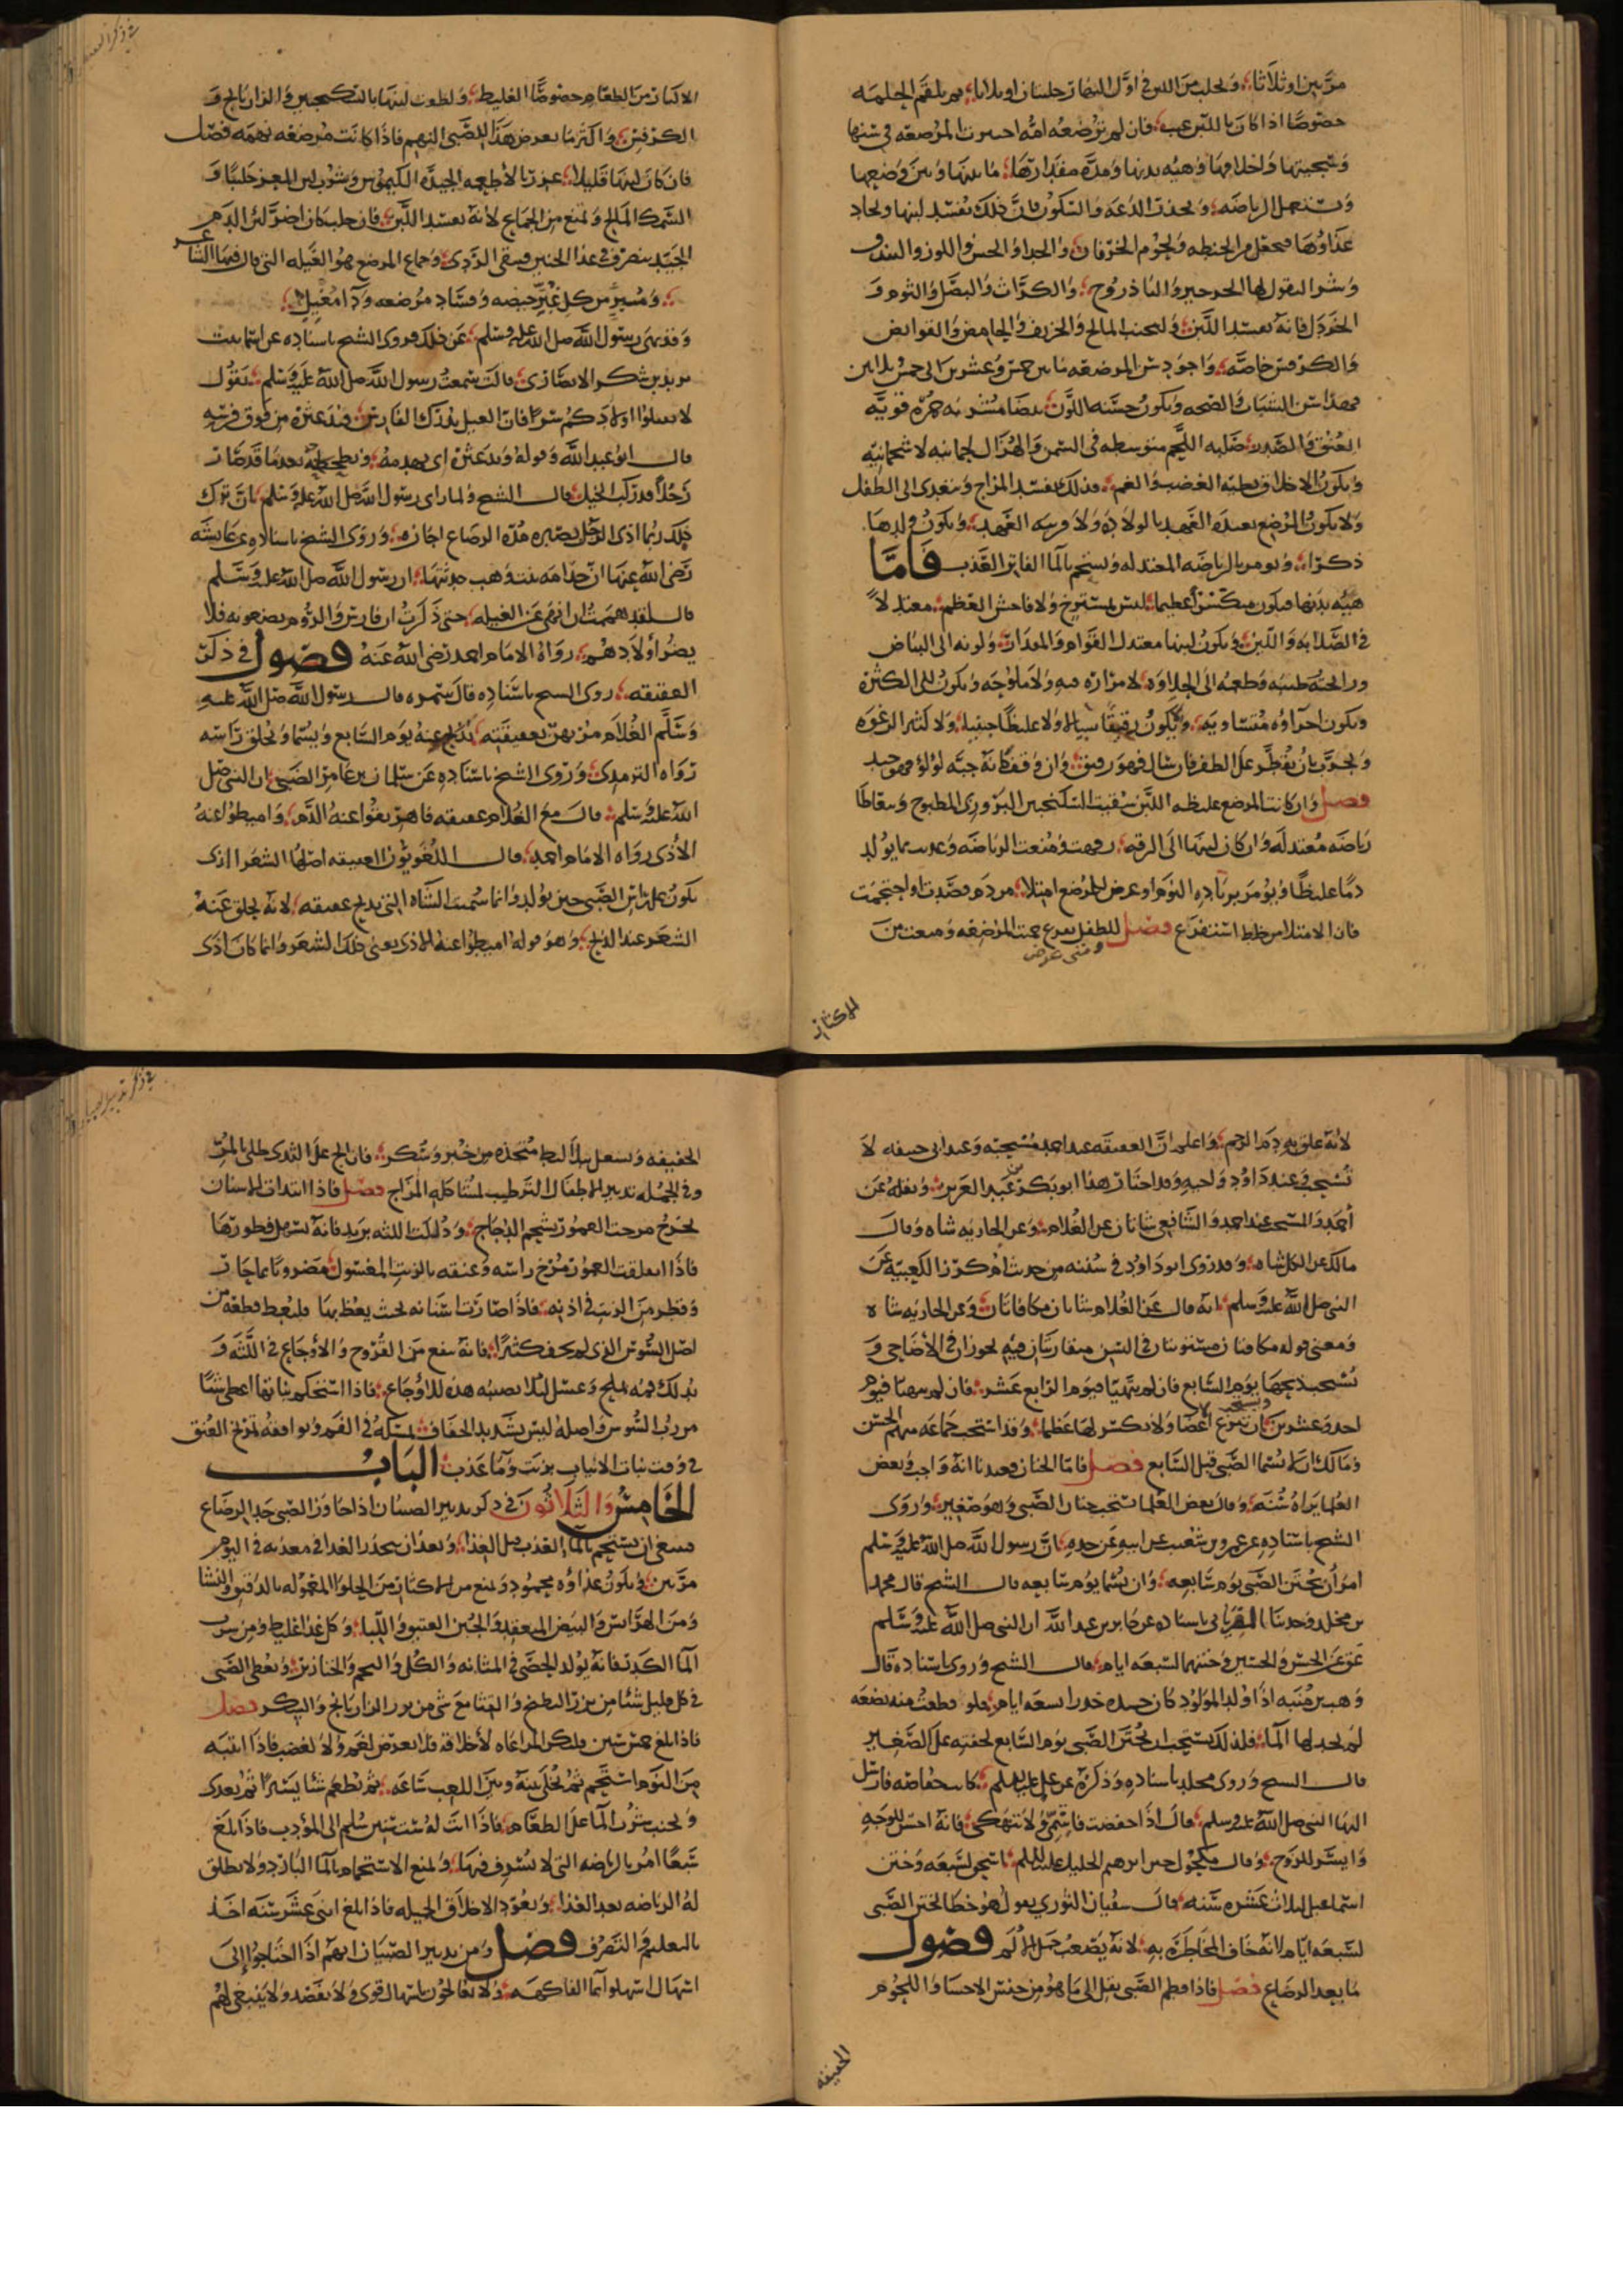 مرتين او ثلاثا ويحلب من اللبن في اول النهار حلبتان او ثلاثا ثم يلقم الحلمه
خصوصا اذا كان باللبن عيب فان لم ترضعه امه اختيرت المرضعه في سنها
وسحنتها واخلاقها وهيه بدنها ومده مقدار ما بينها وبين وضعها
وتستعمل الرياضه وتحذر الدعه والسكون فان ذلك يفسد لبنها ويجاد
غذاوها فيجعل من الحنطه ولحوم الخرفان والجدا والخس واللوز والبندق
وشر البقول لها الجرجير والباذروج والكراث والبصل والثوم و
الخردل فانه يفسد اللبن وليجتنب المالح والحريف والحامض والقوابض
والكرفس خاصه واجود سن المرضعه ما بين خمس وعشرين الى خمس وثلاثين
فهذا سن الشباب والصحه وتكون حسنه اللون بيضا مشربه حمره قويه
العنق والصدر صلبه اللحم متوسطه في السمن والهزال لحمانيه لا شحمانيه
وتكون الاخلاق بطيه الغضب والغم فذلك يفسد المزاج ويتعدى الى الطفل
ولا يكون المرضع بعيده العهد بالولاده ولا قريبه العهد ويكون ولدها
ذكرا وتومر بالرياضه المعتدله وتستحم بالما الفاتر العذب فاما
هيه بدنها فيكون مكتنزا عظيما ليس بمسترخ ولا فاحش العظم معتدلا
في الصلابه واللين ويكون لبنها معتدل القوام والمقدار ولونه الى البياض
ورائحته طيبه وطعمه الى الحلاوه لا مراره فيه ولا ملوحه ويكون الى الكثره
ويكون اجزاوه متساويه ولا يكون رقيقا سيالا ولا غليظا جبنيا ولا كثير الرغوه
ويجرب بان يقطر على الظفر فان سال فهو رقيق وان وقف كانه حبه لولو فهو جيد
فصل وان كانت المرضع غليظه اللبن سقيت السكنجبين البزوري المطبوخ ويتعاطا
رياضه معتدله وان كان لبنها الى الرقه رفهت ومنعت الرياضه وغذيت بما يولد
دما غليظا ويومر بزياده النوم او عرض للمرضع امتلا من دم فصدت او احتجمت
فان الامتلا من خلط استفرغ فصل للطفل مرض حمت المرضعه ومنعت من
ومتى عرض
الاكثار
في ذكر العقيقه
الاكثار من الطعام خصوصا الغليظ ويلطف لبنها بالسكنجبين والرازيانج و
الكرفس واكثر ما يعرض هذا للصبي النهم فاذا كانت مرضعه نهمه فصل
فان كان لبنها قليلا غزر بالاطعمه الجيده الكيموس وشرب لبن المعز حليبا و
السمك المالح وتمنع من الجماع لانه يفسد اللبن فان حبلت كان اضر لان الدم
الجيد ينصرف في غذا الجنين فيبقى الردي وجماع المرضع هو الغيله التي قال فيها الشاعر
ومبرء من كل غبر حيضه وفساد مرضعه ودا مغيل
وقد نهى رسول الله صلى الله عليه وسلم عن ذلك فروى الشيخ باسناده عن اسما بنت
يزيد بن السكن الانصاري قالت سمعت رسول الله صلى الله عليه وسلم يقول
لا تقتلوا اولادكم سرا فان الغيل يدرك الفارس فيدعثره من فوق فرسه
قال ابو عبد الله وقوله يدعثره اي يهدمه ويطحطحه بعد ما قد صار
رجلا قد ركب الخيل قال الشيخ ولما راى رسول الله صلى الله عليه وسلم بان ترك
ذلك ربما اذى الرجل بصبره مده الرضاع اجازه وروى الشيخ باسناده عن عايشه
رضي الله عنها ان جدامه بنت وهب حدثتها ان رسول الله صلى الله عليه وسلم
قال لقد هممت ان انهى عن الغيله حتى ذكرت ان فارس والروم يصنعونه فلا
يضر اولادهم رواه الامام احمد رضي الله عنه فصول في ذكر
العقيقه روى الشيخ باسناده قال سمره قال رسول الله صلى الله عليه
وسلم الغلام مرتهن بعقيقته يذبح عنه يوم السابع ويسما ويحلق راسه
رواه الترمذي وروى الشيخ باسناده عن سلمان بن عامر الضبي ان النبي صلى
الله عليه وسلم قال مع الغلام عقيقه فاهريقوا عنه الدم واميطوا عنه
الاذى رواه الامام احمد قال اللغويون العقيقه اصلها الشعر الذي
يكون على راس الصبي حين يولد وانما سميت الشاه التي تذبح عقيقه لانه يحلق عنه
الشعر عند الذبح وهو قوله اميطوا عنه الاذى يعني ذلك الشعر وانما كان اذى
لانه علق به دم الرحم واعلم ان العقيقه عند احمد مستحبه وعند ابي حنيفه لا
تستحب وعند داود واجبه وقد اختار هذا ابو بكر بن عبد العزيز ونقله عن
احمد والمستحب عند احمد والشافعي شاتان عن الغلام وعن الجاريه شاه وقال
مالك عن الكل شاه وقد روى ابو داود في سننه من حديث ام كرز الكعبيه عن
النبي صلى الله عليه وسلم انه قال عن الغلام شاتان مكافاتان وعن الجاريه شاه
ومعنى قوله مكافتان مستويتان في السن متقاربتان فيه يجوزان في الاضاحي و
يستحب ذبحها يوم السابع فان لم يتهيا فيوم الرابع عشر فان لم يتهيا فيوم
احد وعشرين ويستحب ان تنزع اعضا ولا يكسر لها عظما وقد استحب جماعه منهم الحسن
ومالك ان لا يسما الصبي قبل السابع فصل فاما الختان فعندنا انه واجب وبعض
العلما يراه سنه وقال بعض العلما تستحب ختان الصبي وهو صغير وروى
الشيخ باسناده عن عمرو بن شعيب عن ابيه عن جده ان رسول الله صلى الله عليه وسلم
امر ان يختن الصبي يوم سابعه وان يسما يوم سابعه قال الشيخ قال محمد
بن مخلد وحدثنا باسناده عن جابر بن عبد الله ان النبي صلى الله عليه وسلم
عق عن الحسن والحسين وختنهما لسبعه ايام قال الشيخ وروى باسناده قال
وهب بن منبه اذا ولد المولود كان جسده خدرا سبعه ايام فلو قطعت منه بضعه
لم يجد لها الما فلذلك يستحب ان يختن الصبي يوم السابع لخفته على الصغير
قال الشيخ وروى مخلد باسناده وذكره عن علي عليه السلم كانت خفاضه فارسل
اليها النبي صلى الله عليه وسلم قال اذا خفضت فاشمي ولا تنهكي فانه احسن للوجه
وايسر للزوج وقال مكحول ختن ابرهيم الخليل عليه السلم اسحق لسبعه وختن
اسماعيل لثلاث عشره سنه قال سفيان الثوري يقول هو خطا لختن الصبي
لسبعه ايام لانه خاف المخاطره به لانه يصعب حمل الالم فصول
ما بعد الرضاع فصل فاذا فطم الصبي نقل الى ما هو من جنس الاحسا واللحوم
الخفيفه
في ذكر تدبير الصبيان
الخفيفه ويستعمل بلاليط متخذه من خبز وسكر فان الح على الثدى طلي بالمر
وفي الجمله تدبير الاطفال الترطيب لمشاكله المزاج فصل فاذا ابتدات الاسنان
تخرج مرخت العمور بشحم الدجاج ودلكت اللثه بزبد فانه يسهل فطورها
فاذا انفلقت العمور مرخ راسه وعنقه بالزيت المغسول مضروبا بما حار
وقطر من الزيت في اذنه فاذا صارت اسنانه بحيث يعظ بها فليعط قطعه من
اصل السوس الذي لم يجف كثيرا فانه ينفع من القروح والاوجاع في اللثه و
يدلك فمه بملح وعسل لئلا يصيبه هذه الاوجاع فاذا استحكم نباتها اعطي شيا
من رب السوس واصله ليس بشديد الجفاف يمسكه في الفم ويوافقه تمريخ العنق
في وقت نبات الانياب بزيت وما عذب الباب
الخامس والثلاثون في ذكر تدبير الصبيان اذا جاوز الصبي حد الرضاع
فينبغي ان يستحم بالما العذب قبل الغذا وبعد ان يتحدر الغذا في معدته في اليوم
مرتين ويكون غذاوه محمود ويمنع من الاكثار من الحلوا المعموله بالدقيق والنشا
ومن الهرايس والبيض المعقد والجبن العتيق واللبا وكل غذا غليظ ومن شرب
الما الكدر فانه يولد الحصى في المثانه والكلى والخنازير ويعطى الصبي
في كل قليل شيا من بزر البطيخ والقثا مع شي من بزر الرازيانج والسكر فصل
فاذا بلغ خمس سنين فلتكن المراعاه لاخلاقه فلا يعرض لغم ولا لغضب فاذا انتبه
من النوم استحم ثم يخلى بينه وبين اللعب ساعه ثم يطعم شيا يسيرا ثم يغدى
ويجنب شرب الما على الطعام فاذا اتت له ست سنين سلم الى المودب فاذا بلغ
سبعا امر بالرياضه التي لا يسرف فيها ويمنع الاستحمام بالما البارد ولا يطلق
له الرياضه بعد الغذا ويعود الاخلاق الجميله فاذا بلغ اثنى عشر سنه اخذ
بالتعليم والتصرف فصل ومن تدبير الصبيان انهم اذا احتاجوا الى
اسهال اسهلوا بما الفاكهه ولا يعالجون باسهال قوي ولا بفصد ولا ينبغي لهم